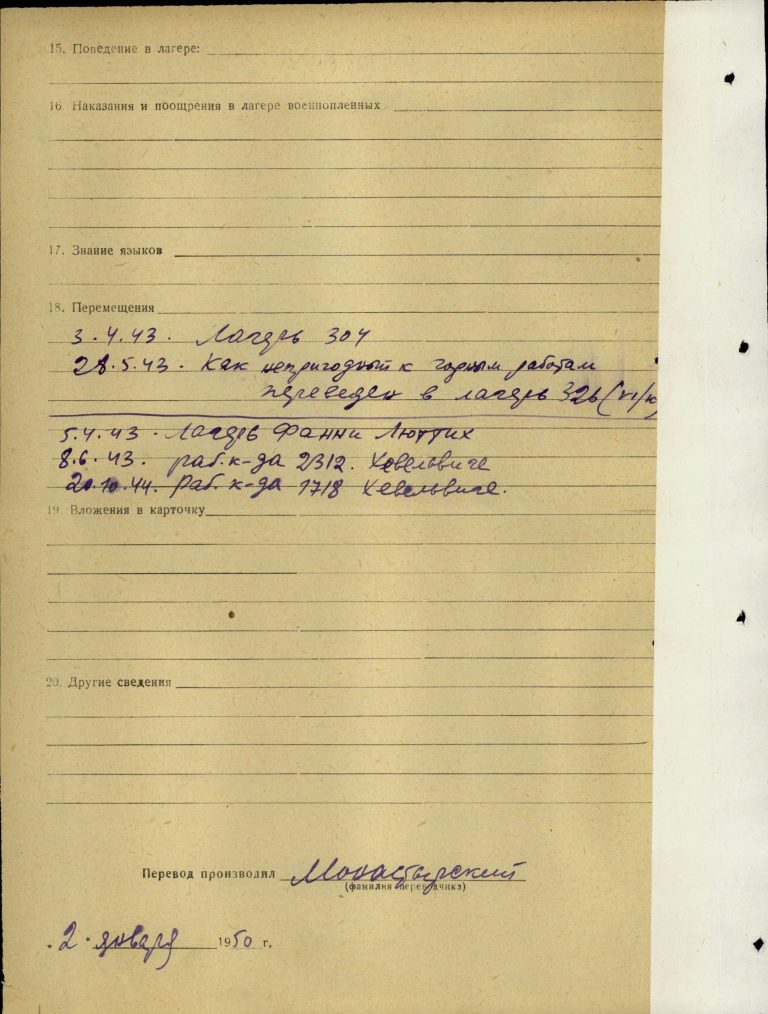 15. Поведение в лагере:
16. Наказания и поощрения в лагере военнопленных
17. Знание языков
18. Перемещения
3.4.43. Лагерь 304
28.5.43. Как непригодный к горным работам
переведен в лагерь 326 (VI/к)
5.4.43 - Лагерь Фанни Люттих
8.6.43. раб. к-да 2312. Хевельвиче
20.10.44. Раб. к-да 1718 Хевельвиче.
19. Вложения в карточку
20. Другие сведения
Перевод производил Монастырский
(фамилия переводчика)
"2" января 1950 г.